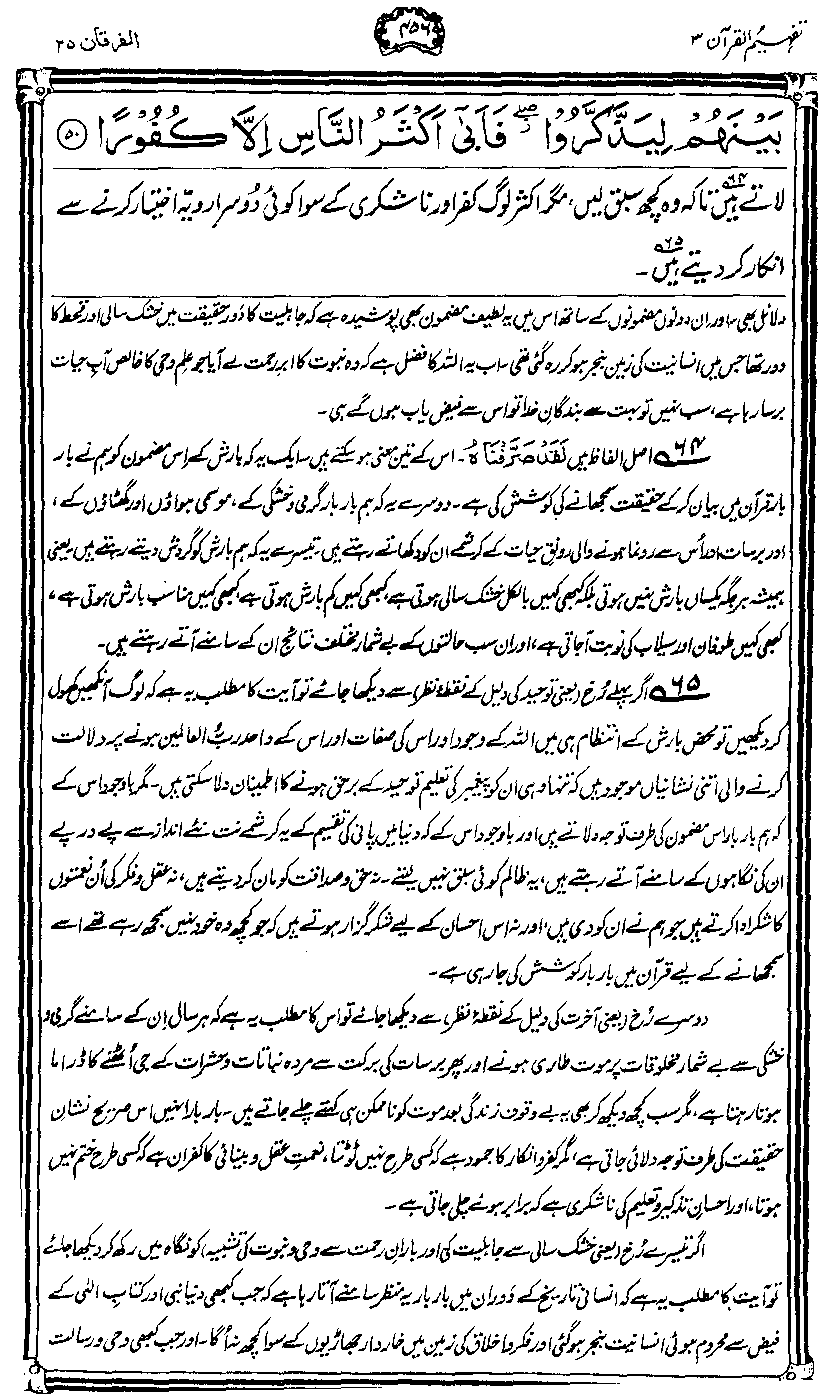 تفہیم القرآن ۳
۴۵۶
الفرقان ۲۵
بَيْنَهُمْ لِيَذَّكَّرُوْا ۖ فَاَبٰٓى اَكْثَرُ النَّاسِ اِلَّا كُفُوْرًا ۝۵۰
لاتے ہیں۶۴ تاکہ وہ کچھ سبق لیں، مگر اکثر لوگ کفر اور ناشکری کے سوا کوئی دُوسرا رویّہ اختیار کرنے سے
انکار کر دیتے ہیں۶۵۔
دلائل بھی۔ اور ان دونوں مضمونوں کے ساتھ اس میں یہ لطیف مضمون بھی پوشیدہ ہے کہ جاہلیت کا دَور حقیقت میں خشک سالی اور قحط کا
دور تھا جس میں انسانیت کی زمین بنجر ہو کر رہ گئی تھی۔ اب یہ اللہ کا فضل ہے کہ وہ نبوت کا ابرِ رحمت لے آیا جو علمِ وحی کا خالص آبِ حیات
برسا رہا ہے، سب نہیں تو بہت سے بندگانِ خدا تو اس سے فیض یاب ہوں گے ہی۔
۶۴ اصل الفاظ ہیں لَقَدْ صَرَّفْنَاہُ۔ اس کے تین معنی ہو سکتے ہیں۔ ایک یہ کہ بارش کے اس مضمون کو ہم نے بار
بار قرآن میں بیان کر کے حقیقت سمجھانے کی کوشش کی ہے۔ دوسرے یہ کہ ہم بار بار گرمی و خشکی کے، موسمی ہواؤں اور گھٹاؤں کے،
اور برسات اور اُس سے رونما ہونے والی رونقِ حیات کے کرشمے ان کو دکھاتے رہتے ہیں۔ تیسرے یہ کہ ہم بارش کو گردش دیتے رہتے ہیں یعنی
ہمیشہ ہر جگہ یکساں بارش نہیں ہوتی بلکہ کبھی کہیں بالکل خشک سالی ہوتی ہے، کبھی کہیں کم بارش ہوتی ہے، کبھی کہیں مناسب بارش ہوتی ہے،
کبھی کہیں طوفان اور سیلاب کی نوبت آ جاتی ہے، اور ان سب حالتوں کے بے شمار مختلف نتائج ان کے سامنے آتے رہتے ہیں۔
۶۵ اگر پہلے رُخ (یعنی توحید کی دلیل کے نقطۂ نظر) سے دیکھا جائے تو آیت کا مطلب یہ ہے کہ لوگ آنکھیں کھول
کر دیکھیں تو محض بارش کے انتظام ہی میں اللہ کے وجود اور اس کی صفات اور اس کے واحد ربُّ العالمین ہونے پر دلالت
کرنے والی اتنی نشانیاں موجود ہیں کہ تنہا وہی ان کو پیغمبر کی تعلیمِ توحید کے برحق ہونے کا اطمینان دلا سکتی ہیں۔ مگر باوجود اس کے
کہ ہم بار بار اس مضمون کی طرف توجہ دلاتے ہیں اور باوجود اس کے کہ دنیا میں پانی کی تقسیم کے یہ کرشمے نت نئے انداز سے پے در پے
ان کی نگاہوں کے سامنے آتے رہتے ہیں، یہ ظالم کوئی سبق نہیں لیتے۔ نہ حق و صداقت کو مان کر دیتے ہیں، نہ عقل و فکر کی اُن نعمتوں
کا شکر ادا کرتے ہیں جو ہم نے ان کو دی ہیں، اور نہ اس احسان کے لیے شکر گزار ہوتے ہیں کہ جو کچھ وہ خود نہیں سمجھ رہے تھے اسے
سمجھانے کے لیے قرآن میں بار بار کوشش کی جا رہی ہے۔
دوسرے رُخ (یعنی آخرت کی دلیل کے نقطۂ نظر) سے دیکھا جائے تو اس کا مطلب یہ ہے کہ ہر سال اِن کے سامنے گرمی و
خشکی سے بے شمار مخلوقات پر موت طاری ہونے اور پھر برسات کی برکت سے مردہ نباتات و حشرات کے جی اُٹھنے کا ڈراما
ہوتا رہتا ہے، مگر سب کچھ دیکھ کر بھی یہ بے وقوف زندگی بعد موت کو ناممکن ہی کہتے چلے جاتے ہیں۔ بار بار انہیں اس صریح نشانِ
حقیقت کی طرف توجہ دلائی جاتی ہے، مگر کفر و انکار کا جمود ہے کہ کسی طرح نہیں ٹوٹتا، نعمتِ عقل و بینائی کا کفران ہے کہ کسی طرح ختم نہیں
ہوتا، اور احسانِ تذکیر و تعلیم کی ناشکری ہے کہ برابر ہوئے چلی جاتی ہے۔
اگر تیسرے رُخ (یعنی خشک سالی سے جاہلیت کی اور بارانِ رحمت سے وحی و نبوت کی تشبیہ) کو نگاہ میں رکھ کر دیکھا جائے
تو آیت کا مطلب یہ ہے کہ انسانی تاریخ کے دَوران میں بار بار یہ منظر سامنے آتا رہا ہے کہ جب کبھی دنیا نبی اور کتابِ الٰہی کے
فیض سے محروم ہوئی انسانیت بنجر ہو گئی اور فکر و اخلاق کی زمین میں خاردار جھاڑیوں کے سوا کچھ نہ اُگا۔ اور جب کبھی وحی و رسالت